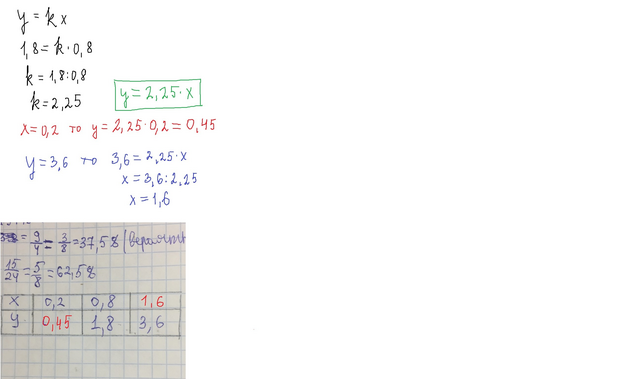 y = k x
1,8 = k · 0,8
k = 1,8 : 0,8
k = 2,25
y = 2,25 · x
x = 0,2 то y = 2,25 · 0,2 = 0,45
y = 3,6 то 3,6 = 2,25 · x
x = 3,6 : 2,25
x = 1,6
= 9/4 = 3/8 = 37,5% (вероятн
15/24 = 5/8 = 62,5%
x 0,2 0,8 1,6
y 0,45 1,8 3,6